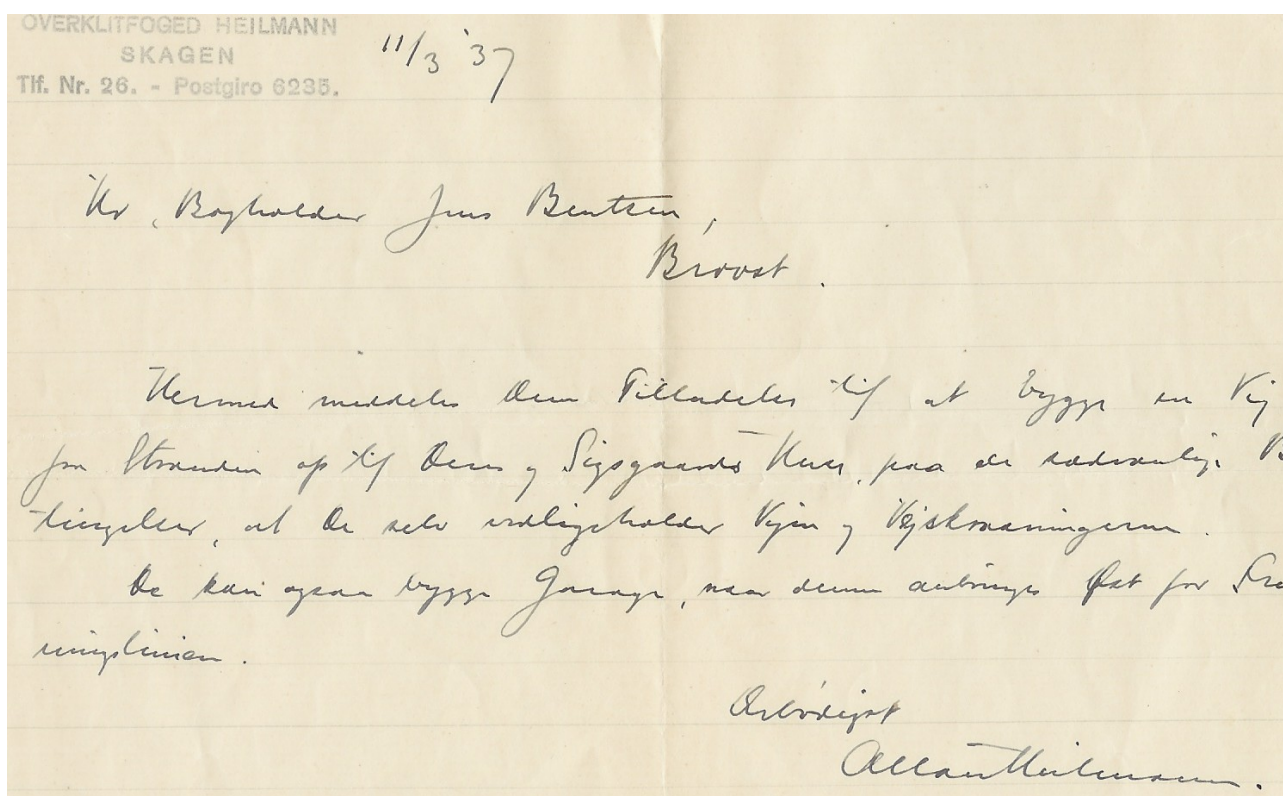 OVERKLITFOGED HEILMANN
SKAGEN
Tlf. Nr. 26. - Postgiro 6235.
11/3 '37
Hr. Bogholder Jens Bentsen,
Brovst.
Hermed meddeles Dem Tilladelse til at bygge en Vej
fra Stranden op til Deres og Sigsgaards Huse, paa de sædvanlige
tingelser, at De selv vedligeholder Vejen og Vejskraaningerne.
De kan ogsaa bygge Garage, naar denne anbringes Øst for
ningslinien.
Ærbødigst
Allan Heilmann.